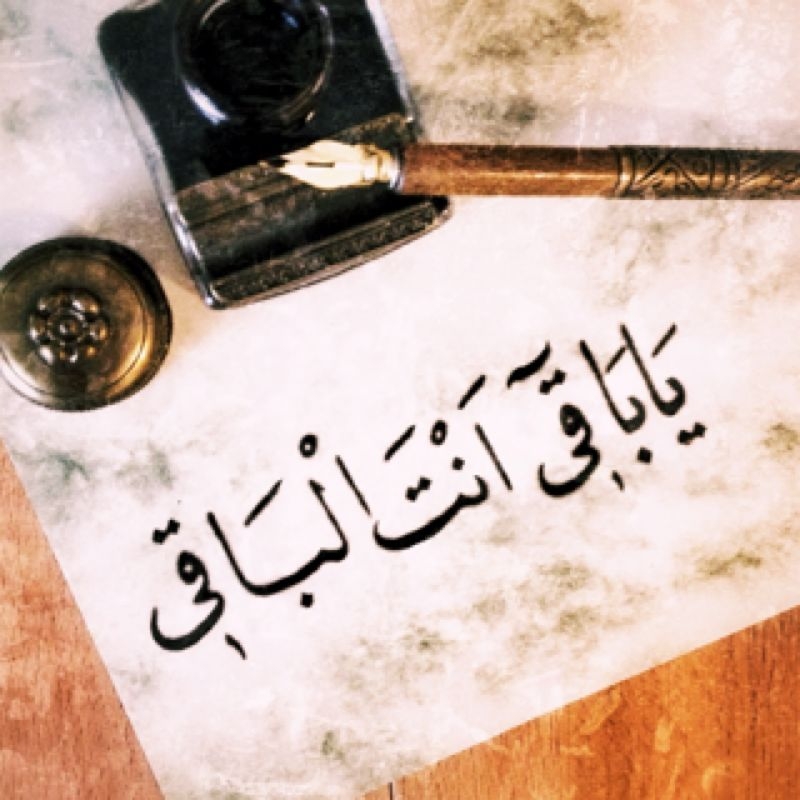 يَا بَاقِٓى اَنْتَ الْبَاقِى